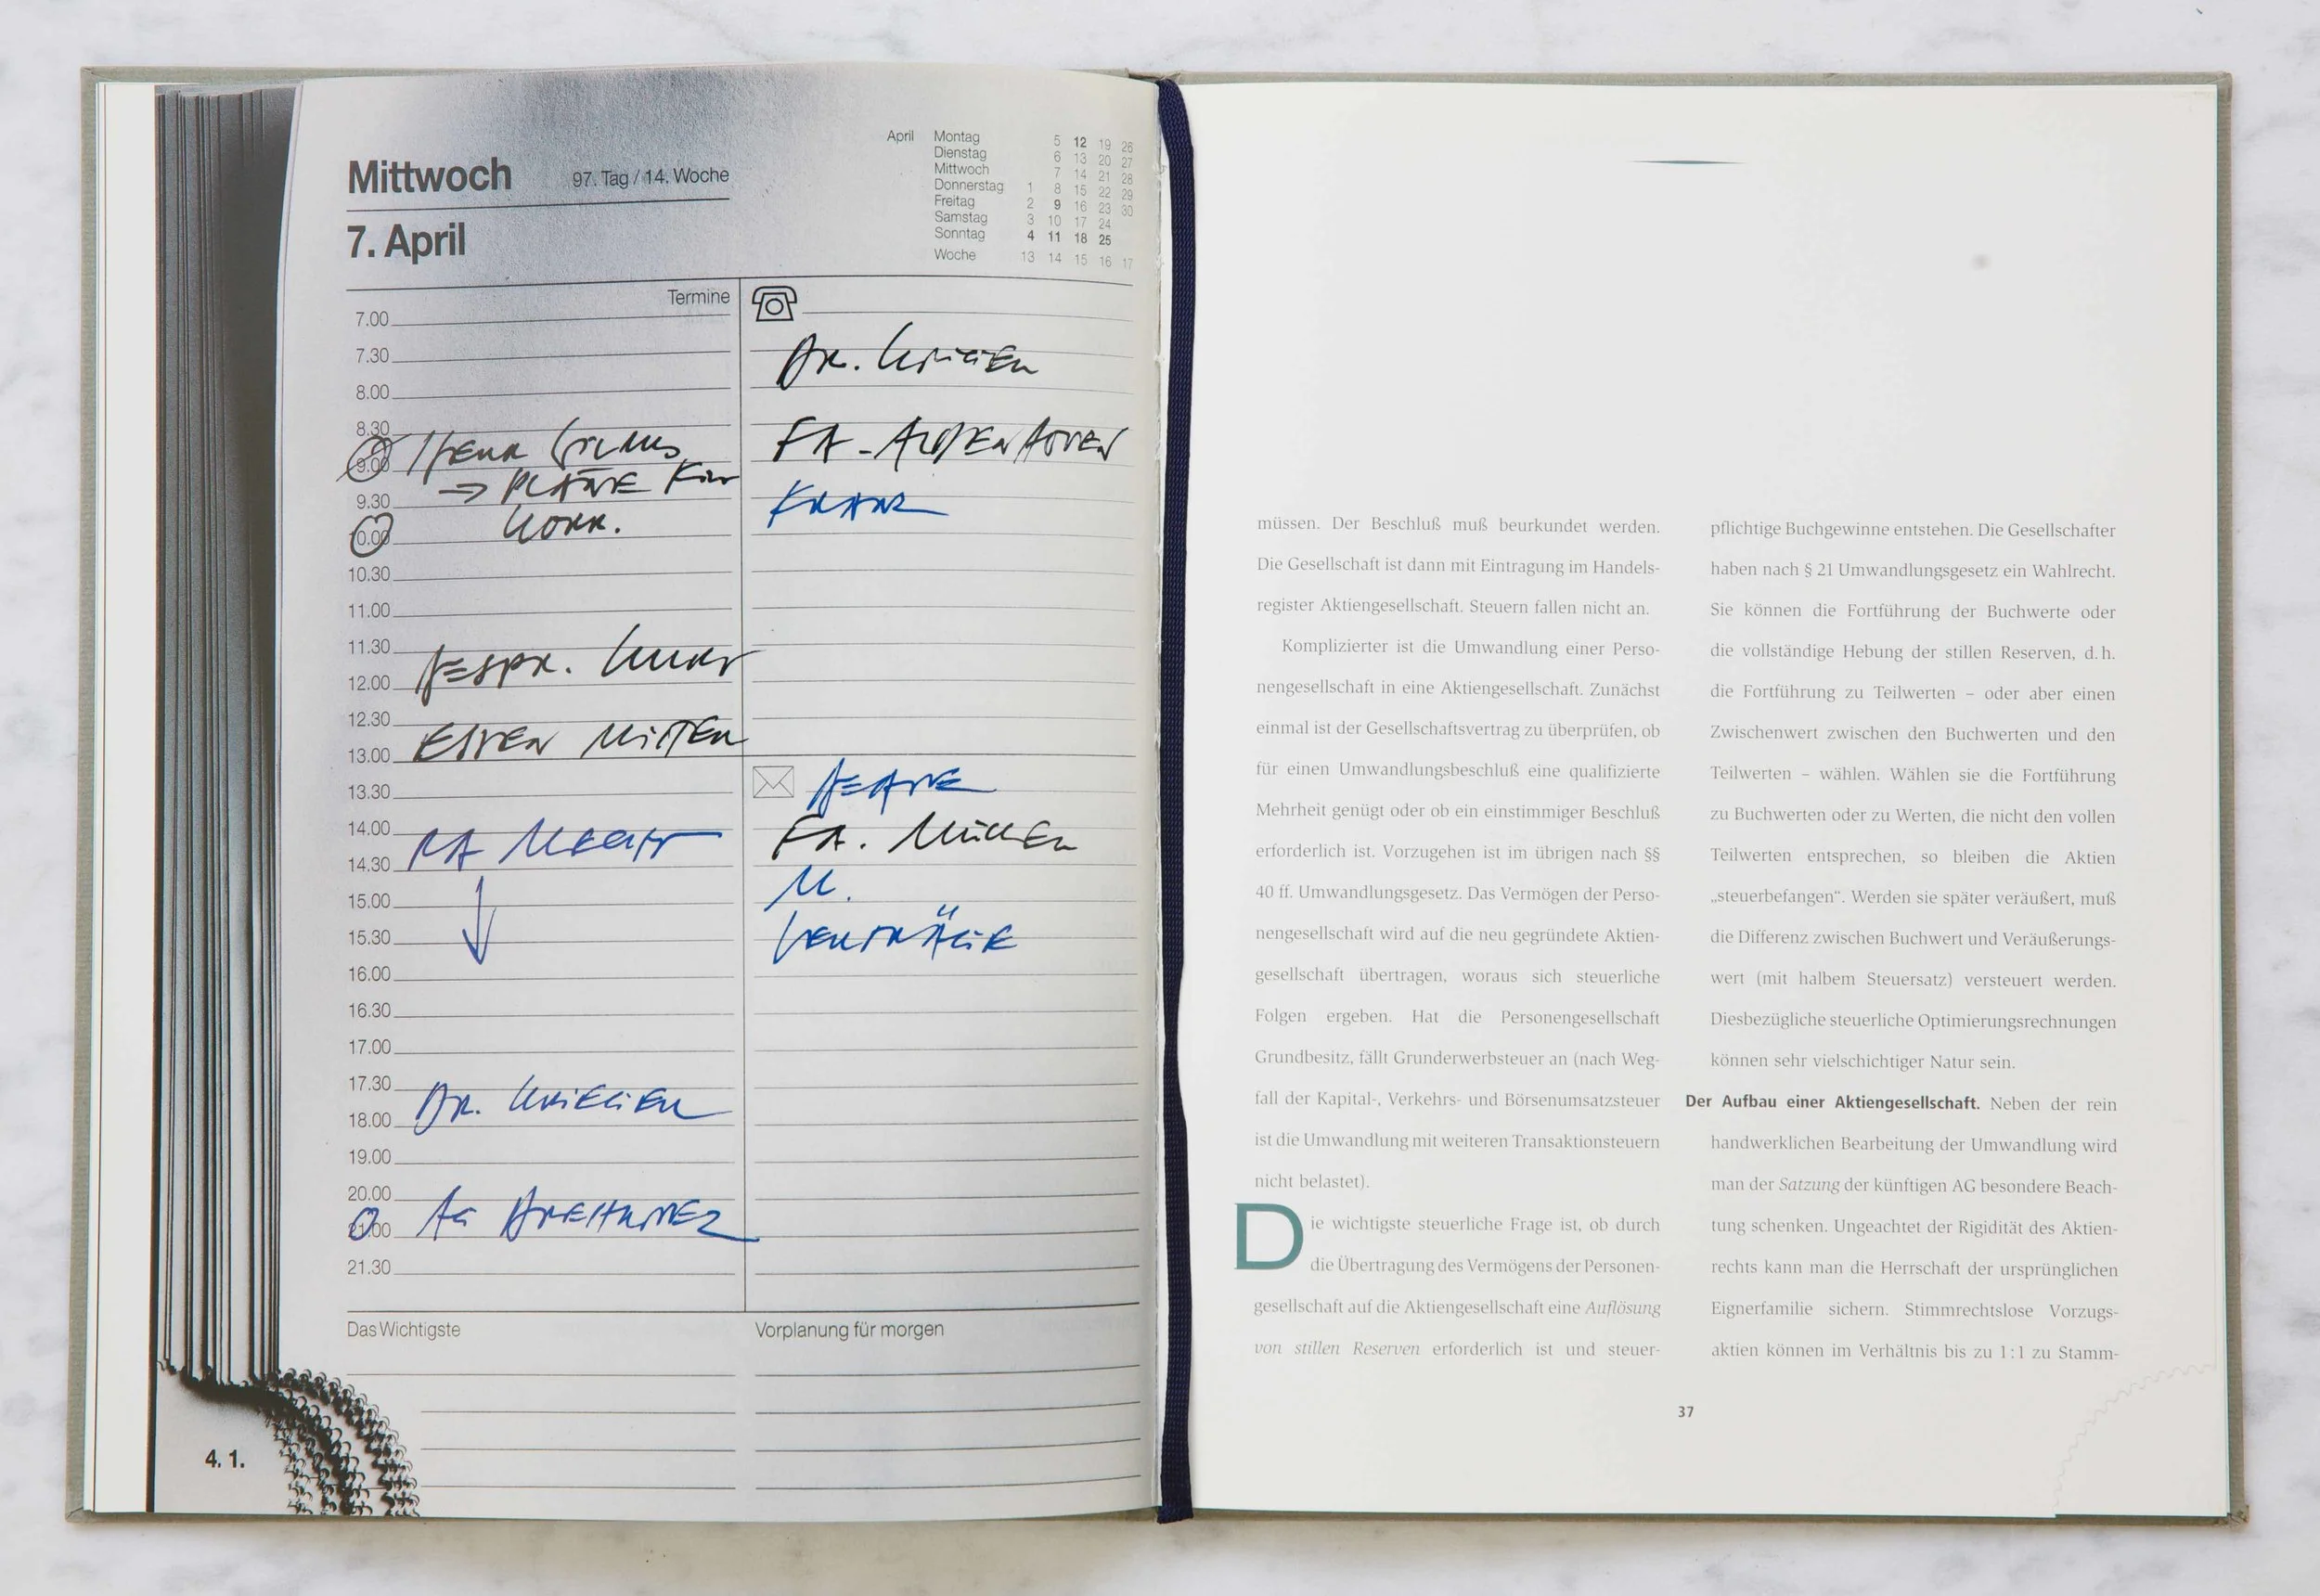 Mittwoch 97. Tag / 14. Woche
7. April
April Montag 5 12 19 26
Dienstag 6 13 20 27
Mittwoch 7 14 21 28
Donnerstag 1 8 15 22 29
Freitag 2 9 16 23 30
Samstag 3 10 17 24
Sonntag 4 11 18 25
Woche 13 14 15 16 17
Termine
7.00
7.30
8.00
8.30
9.00 HERR
⇒ PLÄNE FÜR
9.30
KORR.
10.00
10.30
11.00
11.30
BESPR.
12.00
12.30
ESSEN MITTEN
13.00
13.30
14.00
RA
14.30
15.00
15.30
16.00
16.30
17.00
17.30
DR. KRIEGER
18.00
19.00
20.00
AG
21.00
21.30
DR.
FA -
KRANZ
FA. MÜLLER
M.
VERTRÄGE
Das Wichtigste
Vorplanung für morgen
4. 1.
müssen. Der Beschluß muß beurkundet werden.
Die Gesellschaft ist dann mit Eintragung im Handels-
register Aktiengesellschaft. Steuern fallen nicht an.
Komplizierter ist die Umwandlung einer Perso-
nengesellschaft in eine Aktiengesellschaft. Zunächst
einmal ist der Gesellschaftsvertrag zu überprüfen, ob
für einen Umwandlungsbeschluß eine qualifizierte
Mehrheit genügt oder ob ein einstimmiger Beschluß
erforderlich ist. Vorzugehen ist im übrigen nach §§
40 ff. Umwandlungsgesetz. Das Vermögen der Perso-
nengesellschaft wird auf die neu gegründete Aktien-
gesellschaft übertragen, woraus sich steuerliche
Folgen ergeben. Hat die Personengesellschaft
Grundbesitz, fällt Grunderwerbsteuer an (nach Weg-
fall der Kapital-, Verkehrs- und Börsenumsatzsteuer
ist die Umwandlung mit weiteren Transaktionsteuern
nicht belastet).
Die wichtigste steuerliche Frage ist, ob durch
die Übertragung des Vermögens der Personen-
gesellschaft auf die Aktiengesellschaft eine Auflösung
von stillen Reserven erforderlich ist und steuer-
pflichtige Buchgewinne entstehen. Die Gesellschafter
haben nach § 21 Umwandlungsgesetz ein Wahlrecht.
Sie können die Fortführung der Buchwerte oder
die vollständige Hebung der stillen Reserven, d. h.
die Fortführung zu Teilwerten – oder aber einen
Zwischenwert zwischen den Buchwerten und den
Teilwerten – wählen. Wählen sie die Fortführung
zu Buchwerten oder zu Werten, die nicht den vollen
Teilwerten entsprechen, so bleiben die Aktien
„steuerbefangen“. Werden sie später veräußert, muß
die Differenz zwischen Buchwert und Veräußerungs-
wert (mit halbem Steuersatz) versteuert werden.
Diesbezügliche steuerliche Optimierungsrechnungen
können sehr vielschichtiger Natur sein.
Der Aufbau einer Aktiengesellschaft. Neben der rein
handwerklichen Bearbeitung der Umwandlung wird
man der Satzung der künftigen AG besondere Beach-
tung schenken. Ungeachtet der Rigidität des Aktien-
rechts kann man die Herrschaft der ursprünglichen
Eignerfamilie sichern. Stimmrechtslose Vorzugs-
aktien können im Verhältnis bis zu 1:1 zu Stamm-
37